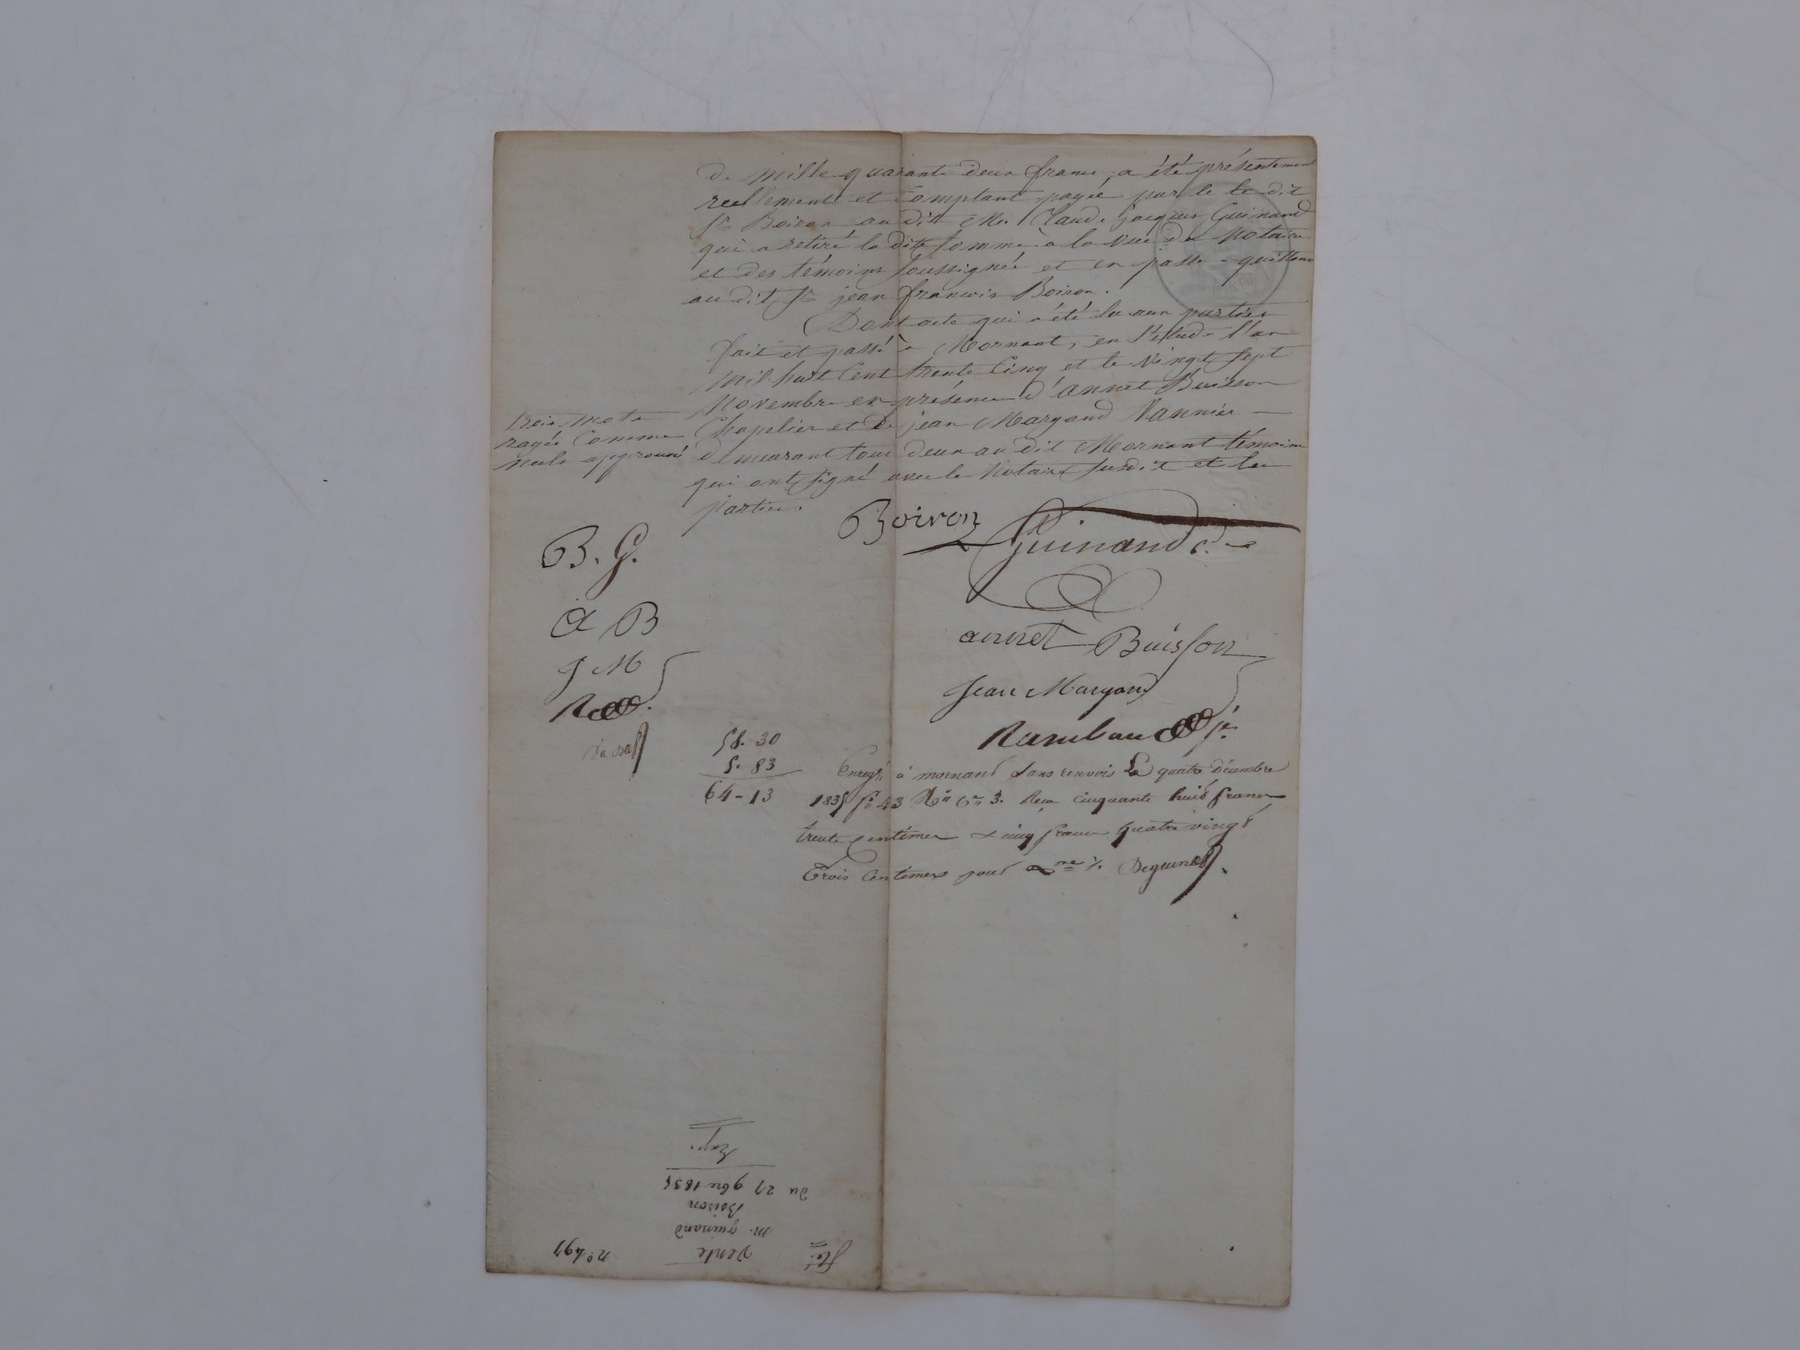 De mille quarante deux francs, a été présentement
reellement et comptant payée par le le dit
Sr Boiron au dit Me. Claude Jacques Guinand
qui a retiré la dite somme à la vue du Notaire
et des témoins soussignés et en passe quittance
au dit Sr jean françois Boiron.
Dont acte qui a été lu aux parties
fait et passé à Mornant, en l'étude l'an
mil huit cent trente cinq et le vingt sept
Novembre en présence d'annet Buisson
Chapelier et de jean Margand Vannier
demeurant tous deux au dit Mornant témoins
qui ont signé avec le Notaire susdit et les
parties.
trois mots
rayés comme
nuls approuvé
Boiron
Guinand C.
B. G.
annet Buisson
A B
Jean Margand
J M
Rambaud jne
58-30
5-83
64-13
Enregé à mornant sans renvois Le quatre décembre
1835 fo 43 Ro Ce 3. Reçu cinquante huit francs
trente centimes & cinq francs quatre vingt
Trois centimes pour Dme %.
Exp.
du 27 9bre 1835
Boiron
m. guinand
vente
no 497